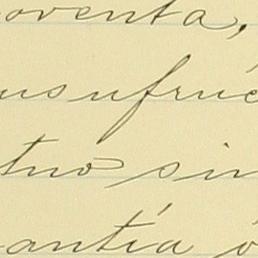 oventa,
usufruc
tuó sin
antía ó